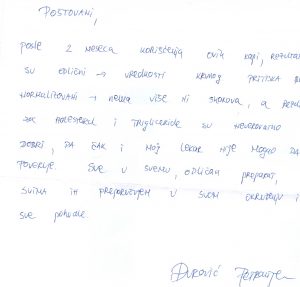 POŠTOVANI,
POSLE 2 MESECA KORIŠĆENJA OVIH KAPI, REZULTAT
SU ODLIČNI → VREDNOSTI KRVNOG PRITISKA
NORMALIZOVANI → NEMA VIŠE NI SKOKOVA, A
ZA HOLESTEROL I TRIGLICERIDE SU NEVEROVATNO
DOBRI, DA ČAK I MOJ LEKAR NIJE MOGAO DA
POVERUJE. SVE U SVEMU, ODLIČAN PREPARAT,
SVIMA IH PREPORUČUJEM U SVOM OKRUŽENJU I
SVE POHVALE.
Đurović